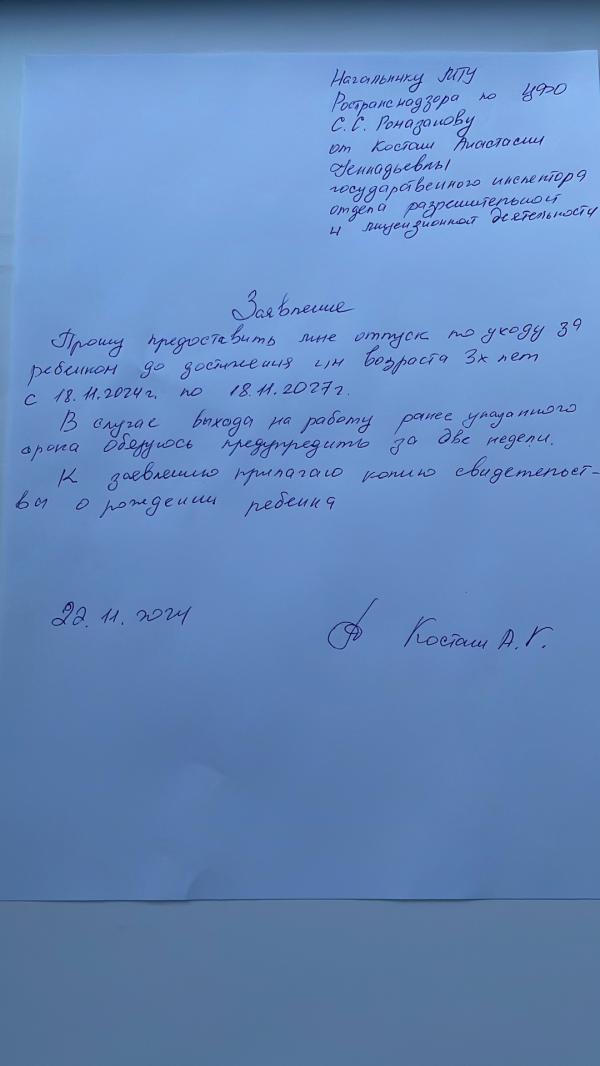 Начальнику МТУ
Ространснадзора по ЦФО
С.С. Ромазанову
от Косташ Анастасии
Геннадьевны
государственного инспектора
отдела разрешительной
и лицензионной деятельности
Заявление
Прошу предоставить мне отпуск по уходу за
ребенком до достижения им возраста 3х лет
с 18.11.2024г. по 18.11.2027г.
В случае выхода на работу ранее указанного
срока обязуюсь предупредить за две недели.
К заявлению прилагаю копию свидетельст-
ва о рождении ребенка
22.11.2024
Косташ А.Г.